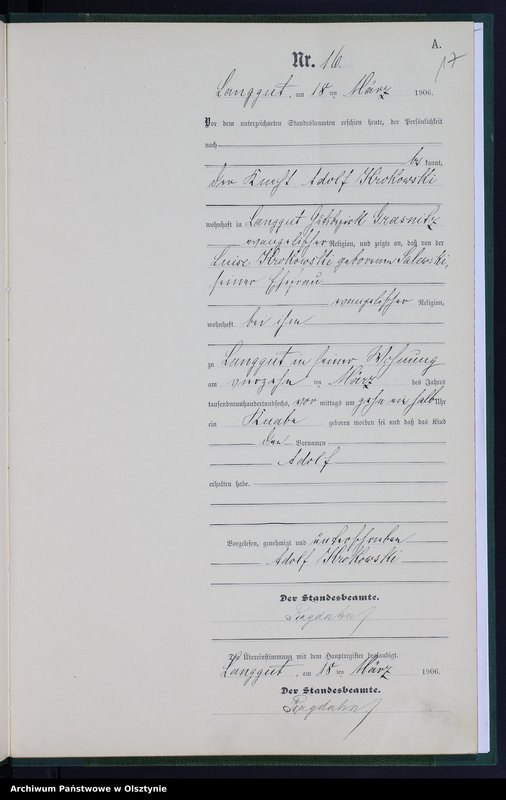 A.
17
Nr. 16.
Langgut, am 18 ten März 1906.
Vor dem unterzeichneten Standesbeamten erschien heute, der Persönlichkeit
nach
be kannt,
der Knecht Adolf Krokowski
wohnhaft in Langgut Gutsbezirk Grasnitz
evangelischer Religion, und zeigte an, daß von der
Luise Krokowski geborenen Salewski,
seiner Ehefrau
evangelischer Religion,
wohnhaft bei ihm
zu Langgut in seiner Wohnung
am vierzehn ten März des Jahres
tausendneunhundertundsechs, vor mittags um zehn ein halb Uhr
ein Knabe geboren worden sei und daß das Kind
den Vornamen
Adolf
erhalten habe.
Vorgelesen, genehmigt und unterschrieben
Adolf Krokowski
Der Standesbeamte.
Die Übereinstimmung mit dem Hauptregister beglaubigt.
Langgut, am 18 ten März 1906.
Der Standesbeamte.
Archiwum Państwowe w Olsztynie